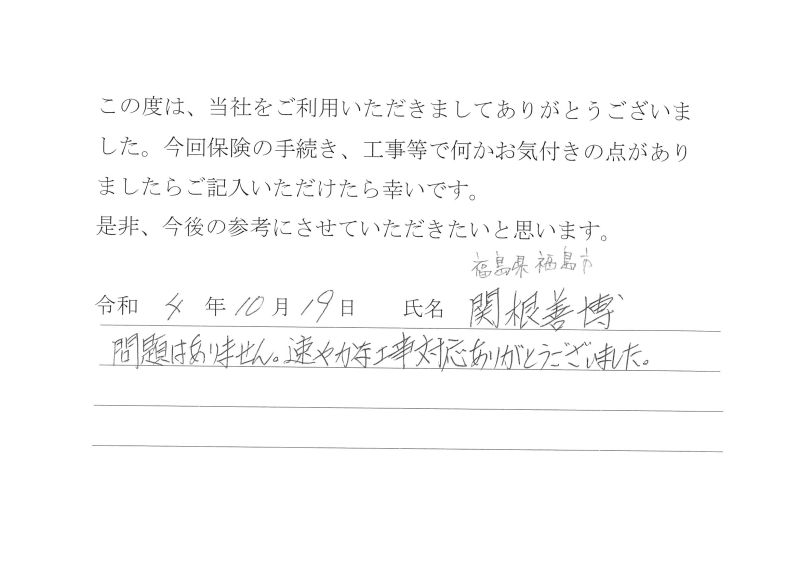 この度は、当社をご利用いただきましてありがとうございま
した。今回保険の手続き、工事等で何かお気付きの点があり
ましたらご記入いただけたら幸いです。
是非、今後の参考にさせていただきたいと思います。
福島県福島市
令和 4 年 10 月 19 日 氏名 関根善博
問題はありません。速やかな工事対応ありがとうございました。